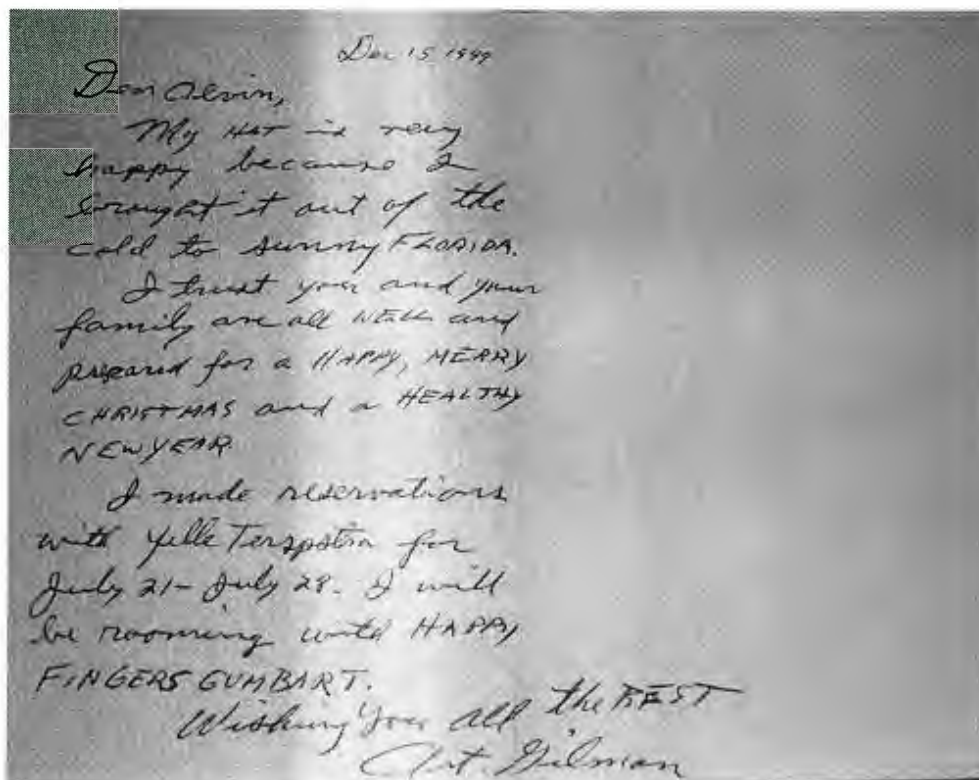 Dec 15 1999
Dear Alvin,
My HAT is very
happy because I
brought it out of the
cold to sunny FLORIDA.
I trust you and your
family are all WELL and
prepared for a HAPPY, MERRY
CHRISTMAS and a HEALTHY
NEW YEAR.
I made reservations
with Yelle Terpstra for
July 21- July 28. I will
be rooming with HAPPY
FINGERS GUMBART.
Wishing You all the BEST
Art. Gilman